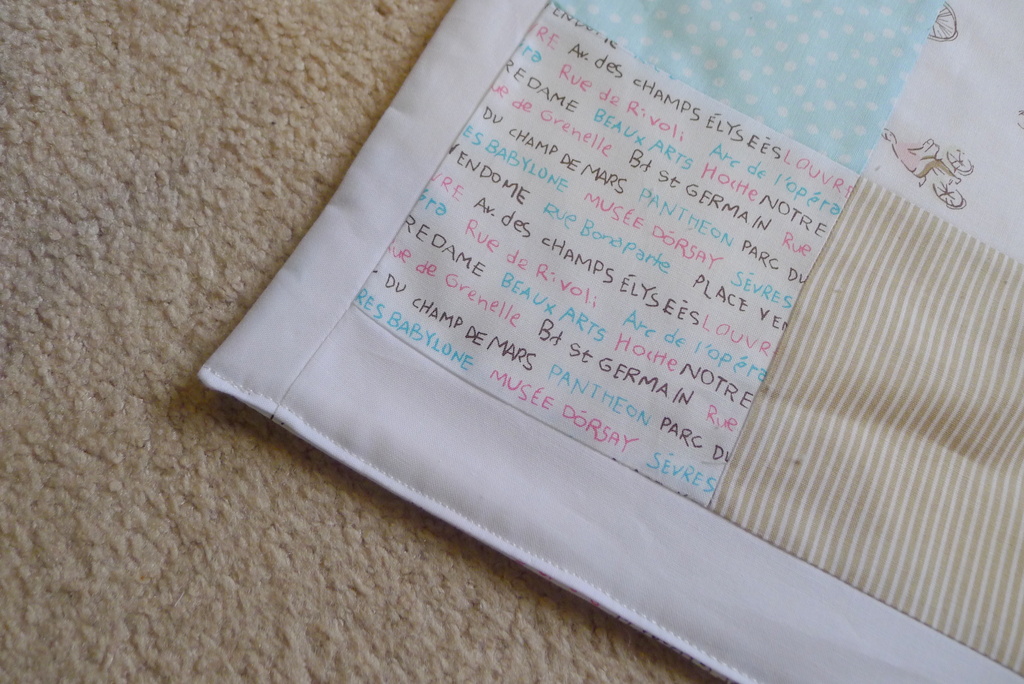 VENDOME
RE Av. des CHAMPS ÉLYSEÉS LOUVRE
éra Rue de Rivoli Arc de l'opéra
REDAME BEAUX ARTS Hoche NOTRE
ue de Grenelle Bd St GERMAIN Rue
DU CHAMP DE MARS PANTHEON PARC DU
ES BABYLONE MUSÉE DÓRSAY SÈVRES
VENDOME Rue Bonaparte PLACE VEN
VRE Av. des CHAMPS ÉLYSEÉS LOUVR
éra Rue de Rivoli Arc de l'opéra
REDAME BEAUX ARTS Hoche NOTRE
ue de Grenelle Bd St GERMAIN Rue
DU CHAMP DE MARS PANTHEON PARC DU
RES BABYLONE MUSÉE DÓRSAY SÈVRES